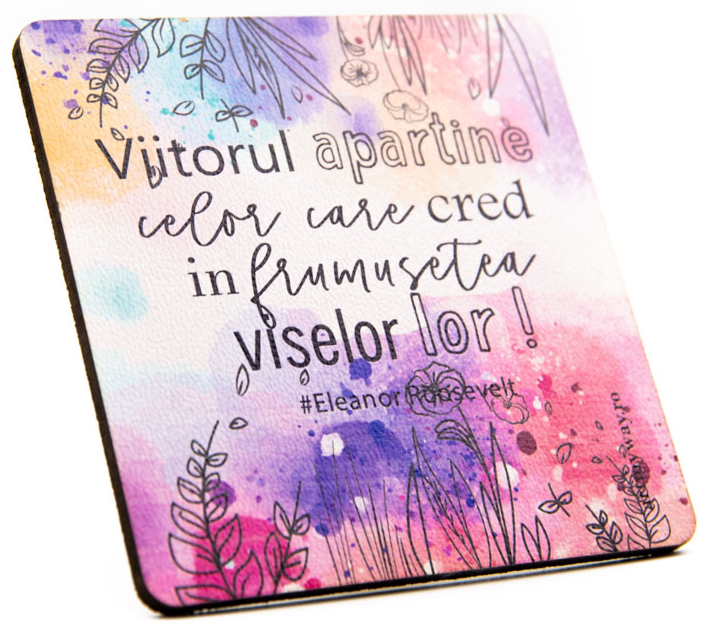 Viitorul apartine
celor care cred
in frumusetea
viselor lor !
#Eleanor Roosevelt